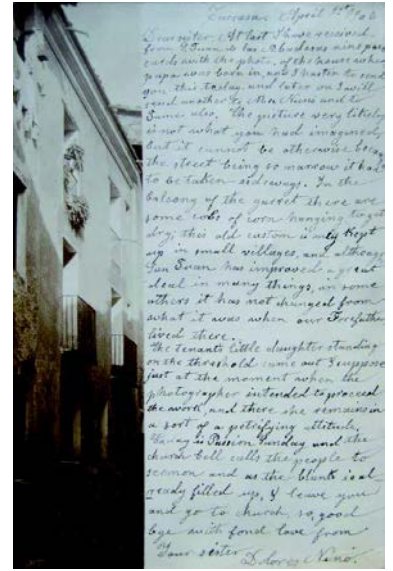 Tarrasa April 1st 1906
Dear sister, At last I have received
from S. Juan de las Abadesas nine post
cards with the photo. of the house where
papa was born in, and I hasten to send
you this to-day, and later on I will
send another to and to
also. The picture very likely
is not what you had imagined,
but it cannot be otherwise
the street being so narrow it has
to be taken sideways. In the
balcony of the garret there are
some cobs of corn hanging to get
dry; this old custom is only kept
up in small villages, and although
San Juan has improved a great
deal in many things, in some
others it has not changed from
what it was when our Forefathers
lived there.
The tenants little daughter standing
on the threshold came out I suppose
just at the moment when the
photographer intended to proceed
the work, and there she remains in
a sort of a petrifying attitude.
To-day is Passion Sunday and the
church bell calls the people to
sermon and as the blank is al-
ready filled up, I leave you
and go to church, so, good
bye with fond love from
Your sister
Dolores Ninó.